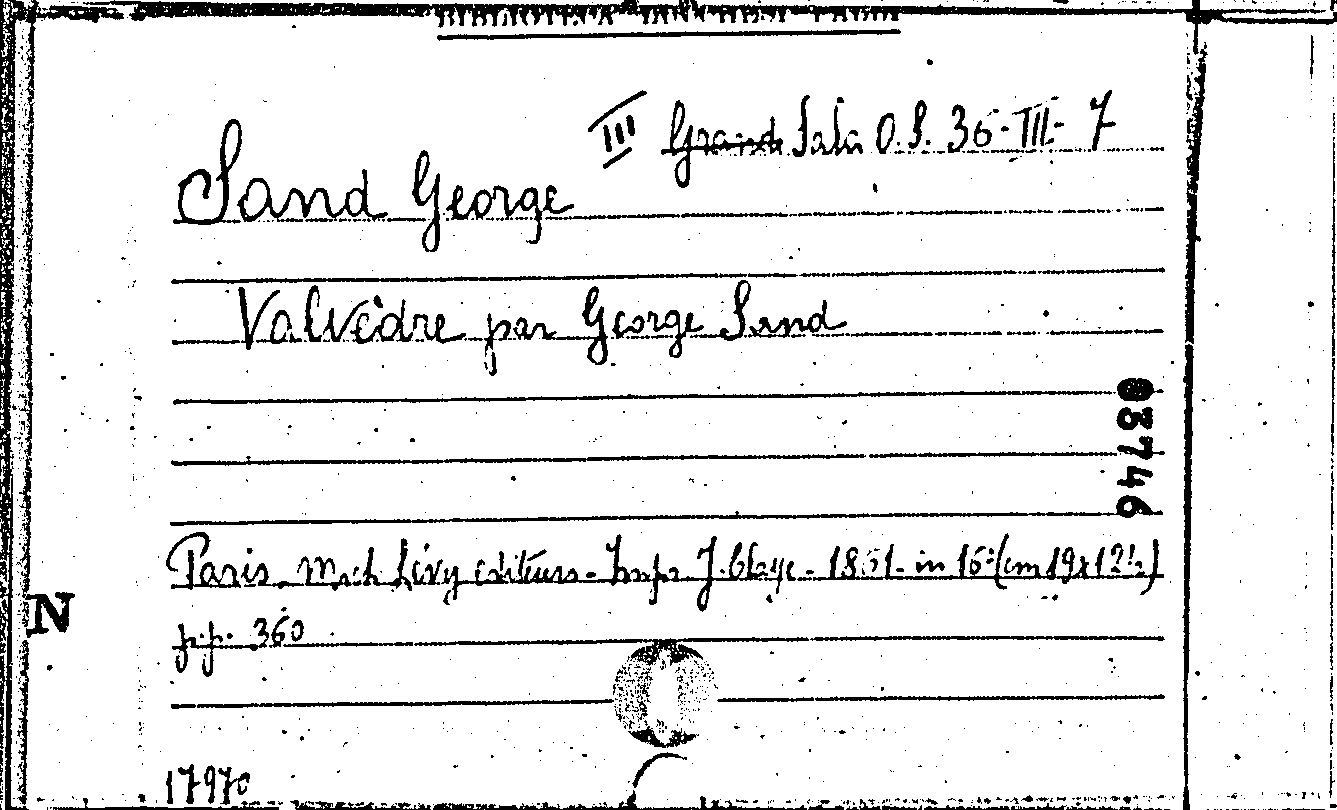 III Grande Sala O.S. 36-III-7
Sand George
Valvèdre par George Sand
03746
Paris - Mich Lévy editeurs - Impr J. Claye - 1861 - in 16° (cm 19x12½)
N
p.p. 360
17970